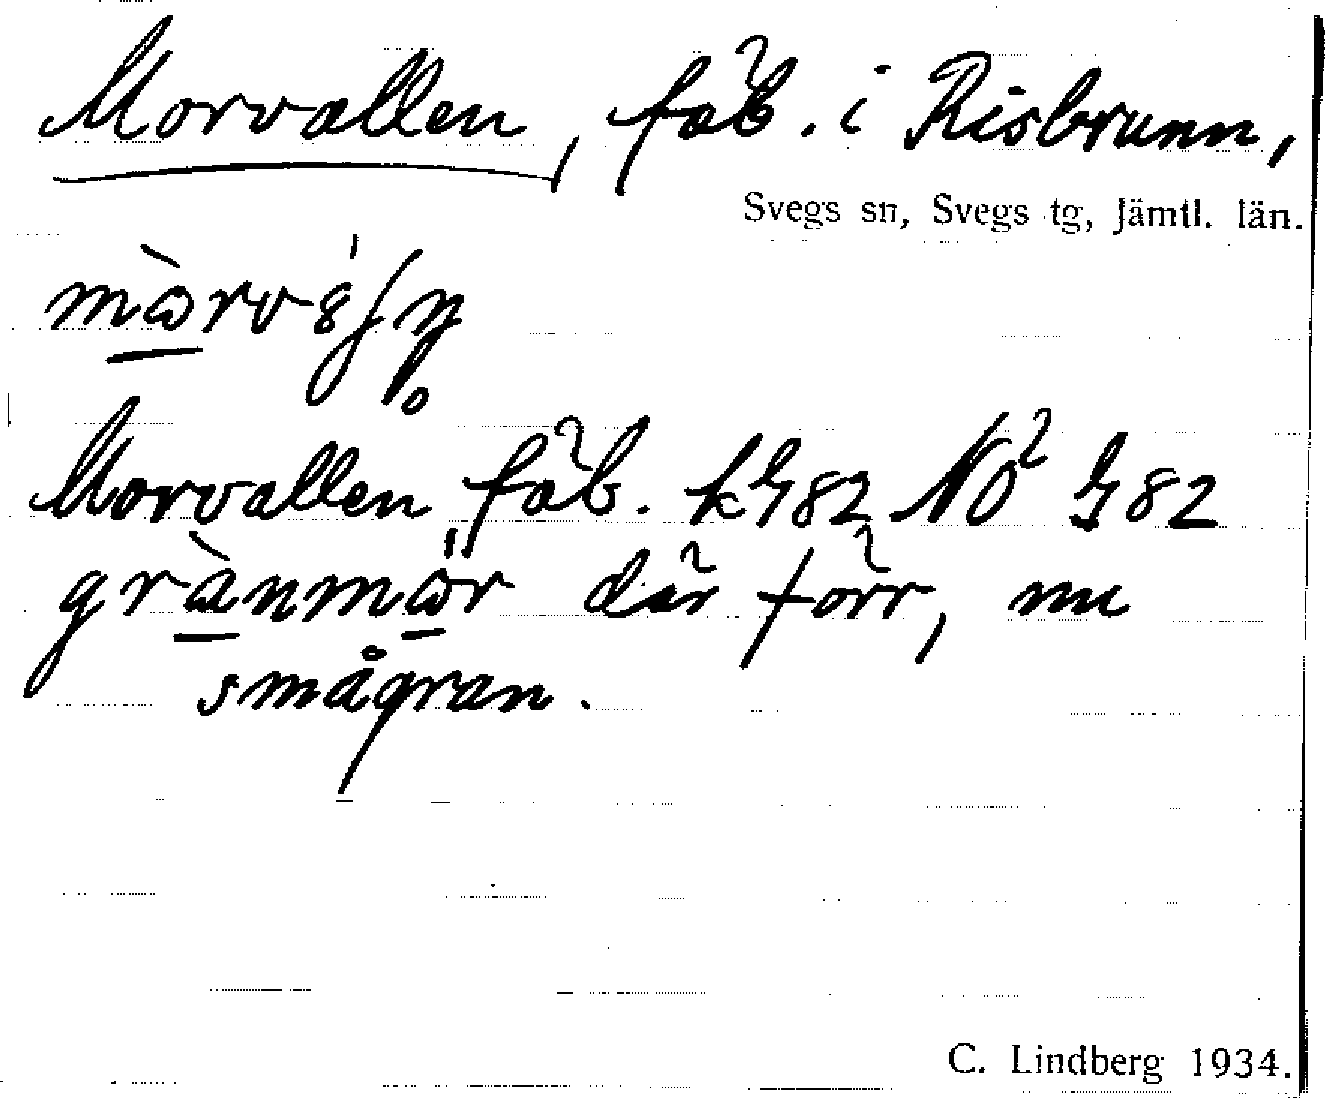 Morvallen, fäb. i Risbrunn,
Svegs sn, Svegs tg, Jämtl. län.
Morvallen fäb. kG82 NO² G82
där förr, nu
smågran.
C. Lindberg 1934.